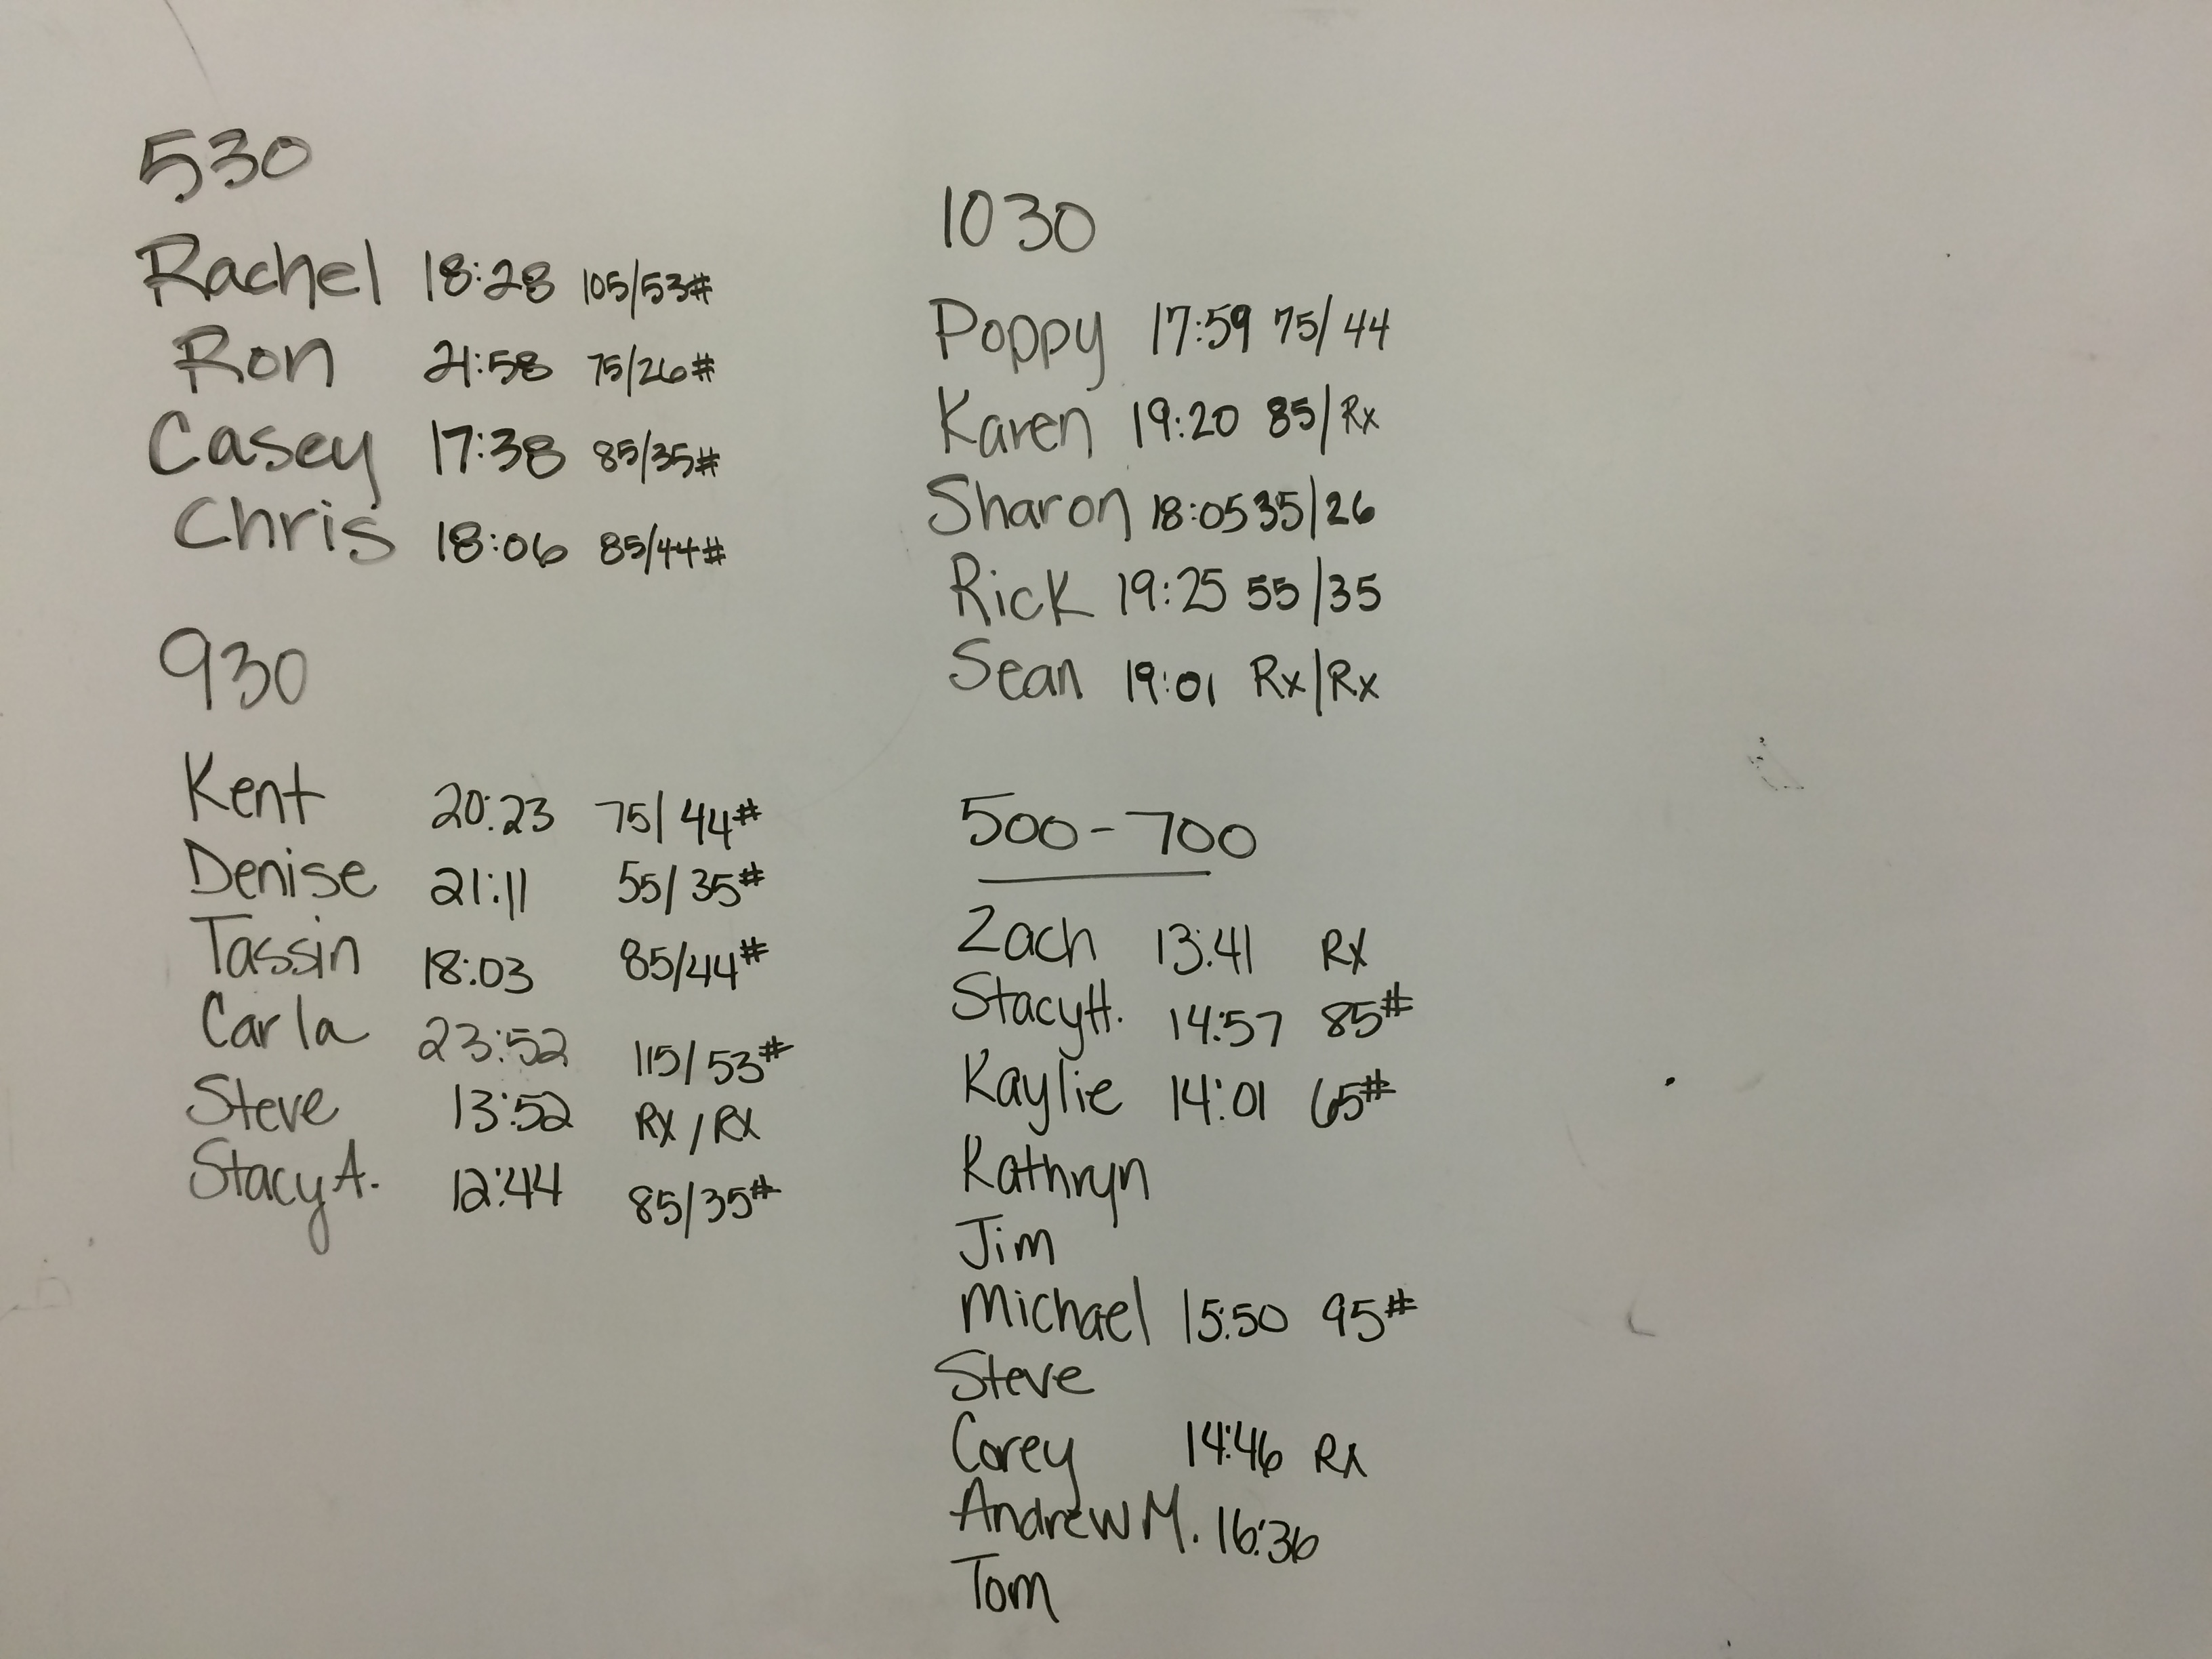 530
Rachel 18:28 105/53#
Ron 21:58 75/26#
Casey 17:38 85/35#
Chris 18:06 85/44#
930
Kent 20:23 75/44#
Denise 21:11 55/35#
Tassin 18:03 85/44#
Carla 23:52 115/53#
Steve 13:52 RX/RX
Stacy A. 12:44 85/35#
1030
Poppy 17:59 75/44
Karen 19:20 85/Rx
Sharon 18:05 35/26
Rick 19:25 55/35
Sean 19:01 Rx/Rx
500-700
Zach 13:41 RX
Stacy H. 14:57 85#
Kaylie 14:01 65#
Kathryn
Jim
Michael 15:50 95#
Steve
Corey 14:46 RX
Andrew M. 16:36
Tom